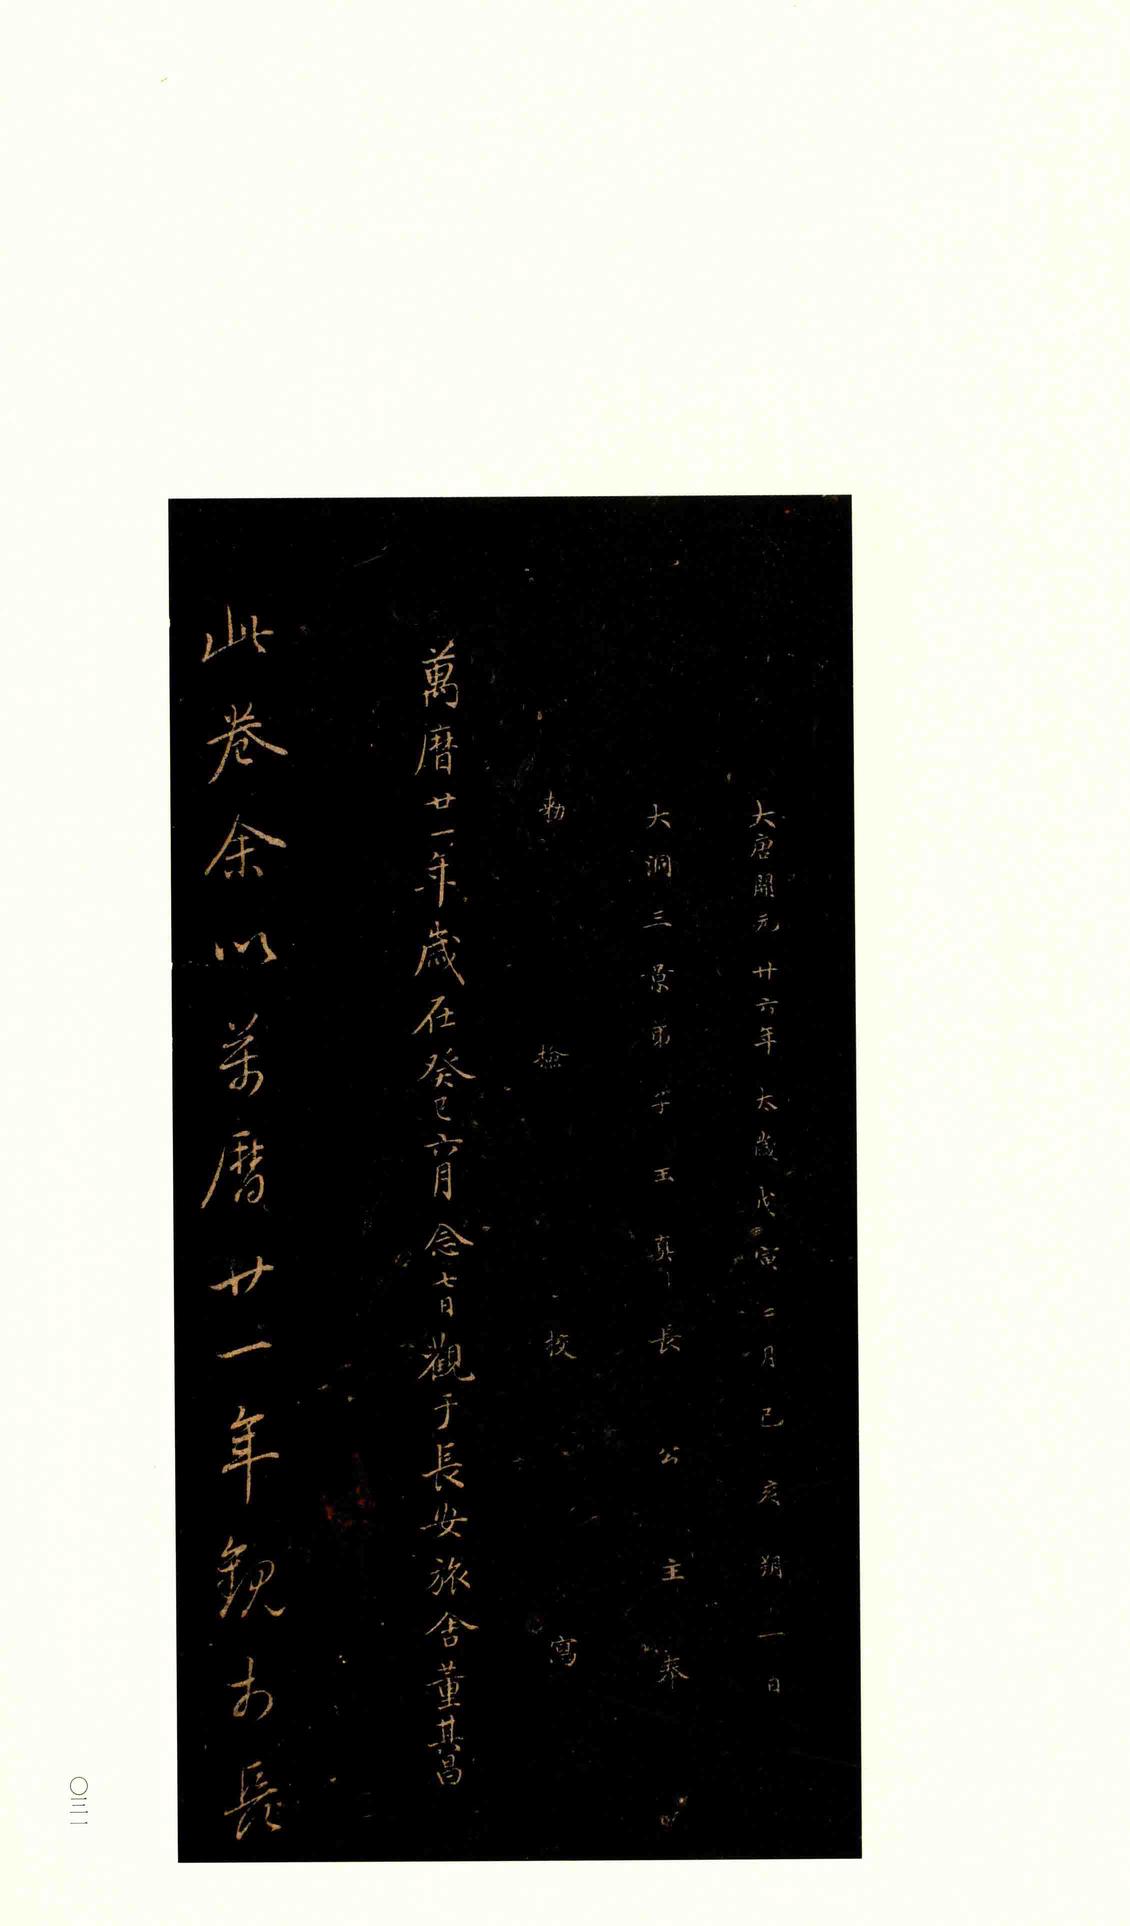 大唐開元廿六年太歲戊寅二月己亥朔一日
大洞三景弟子玉真長公主奉
勅檢校寫
萬曆廿一年歲在癸巳六月念七日觀于長安旅舍董其昌
此卷余以萬曆廿一年觀於長
〇三二